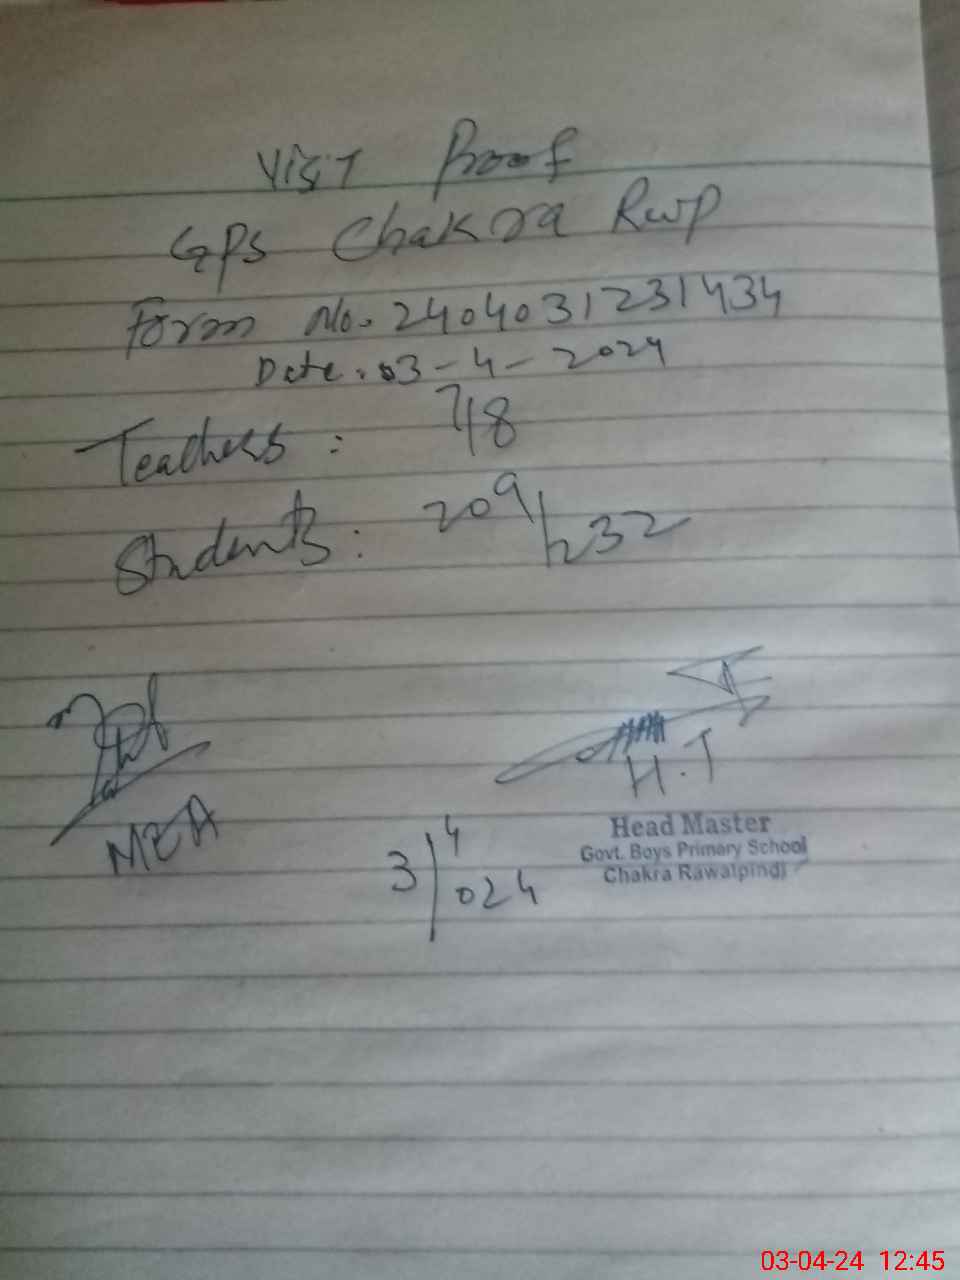 Visit Proof
GPS Chakra Rwp
Form No. 2404031231434
Date. 03-4-2024
Teachers: 7/8
Students: 209/232
MEA
H.T
3/4
024
Head Master
Govt. Boys Primary School
Chakra Rawalpindi
03-04-24 12:45